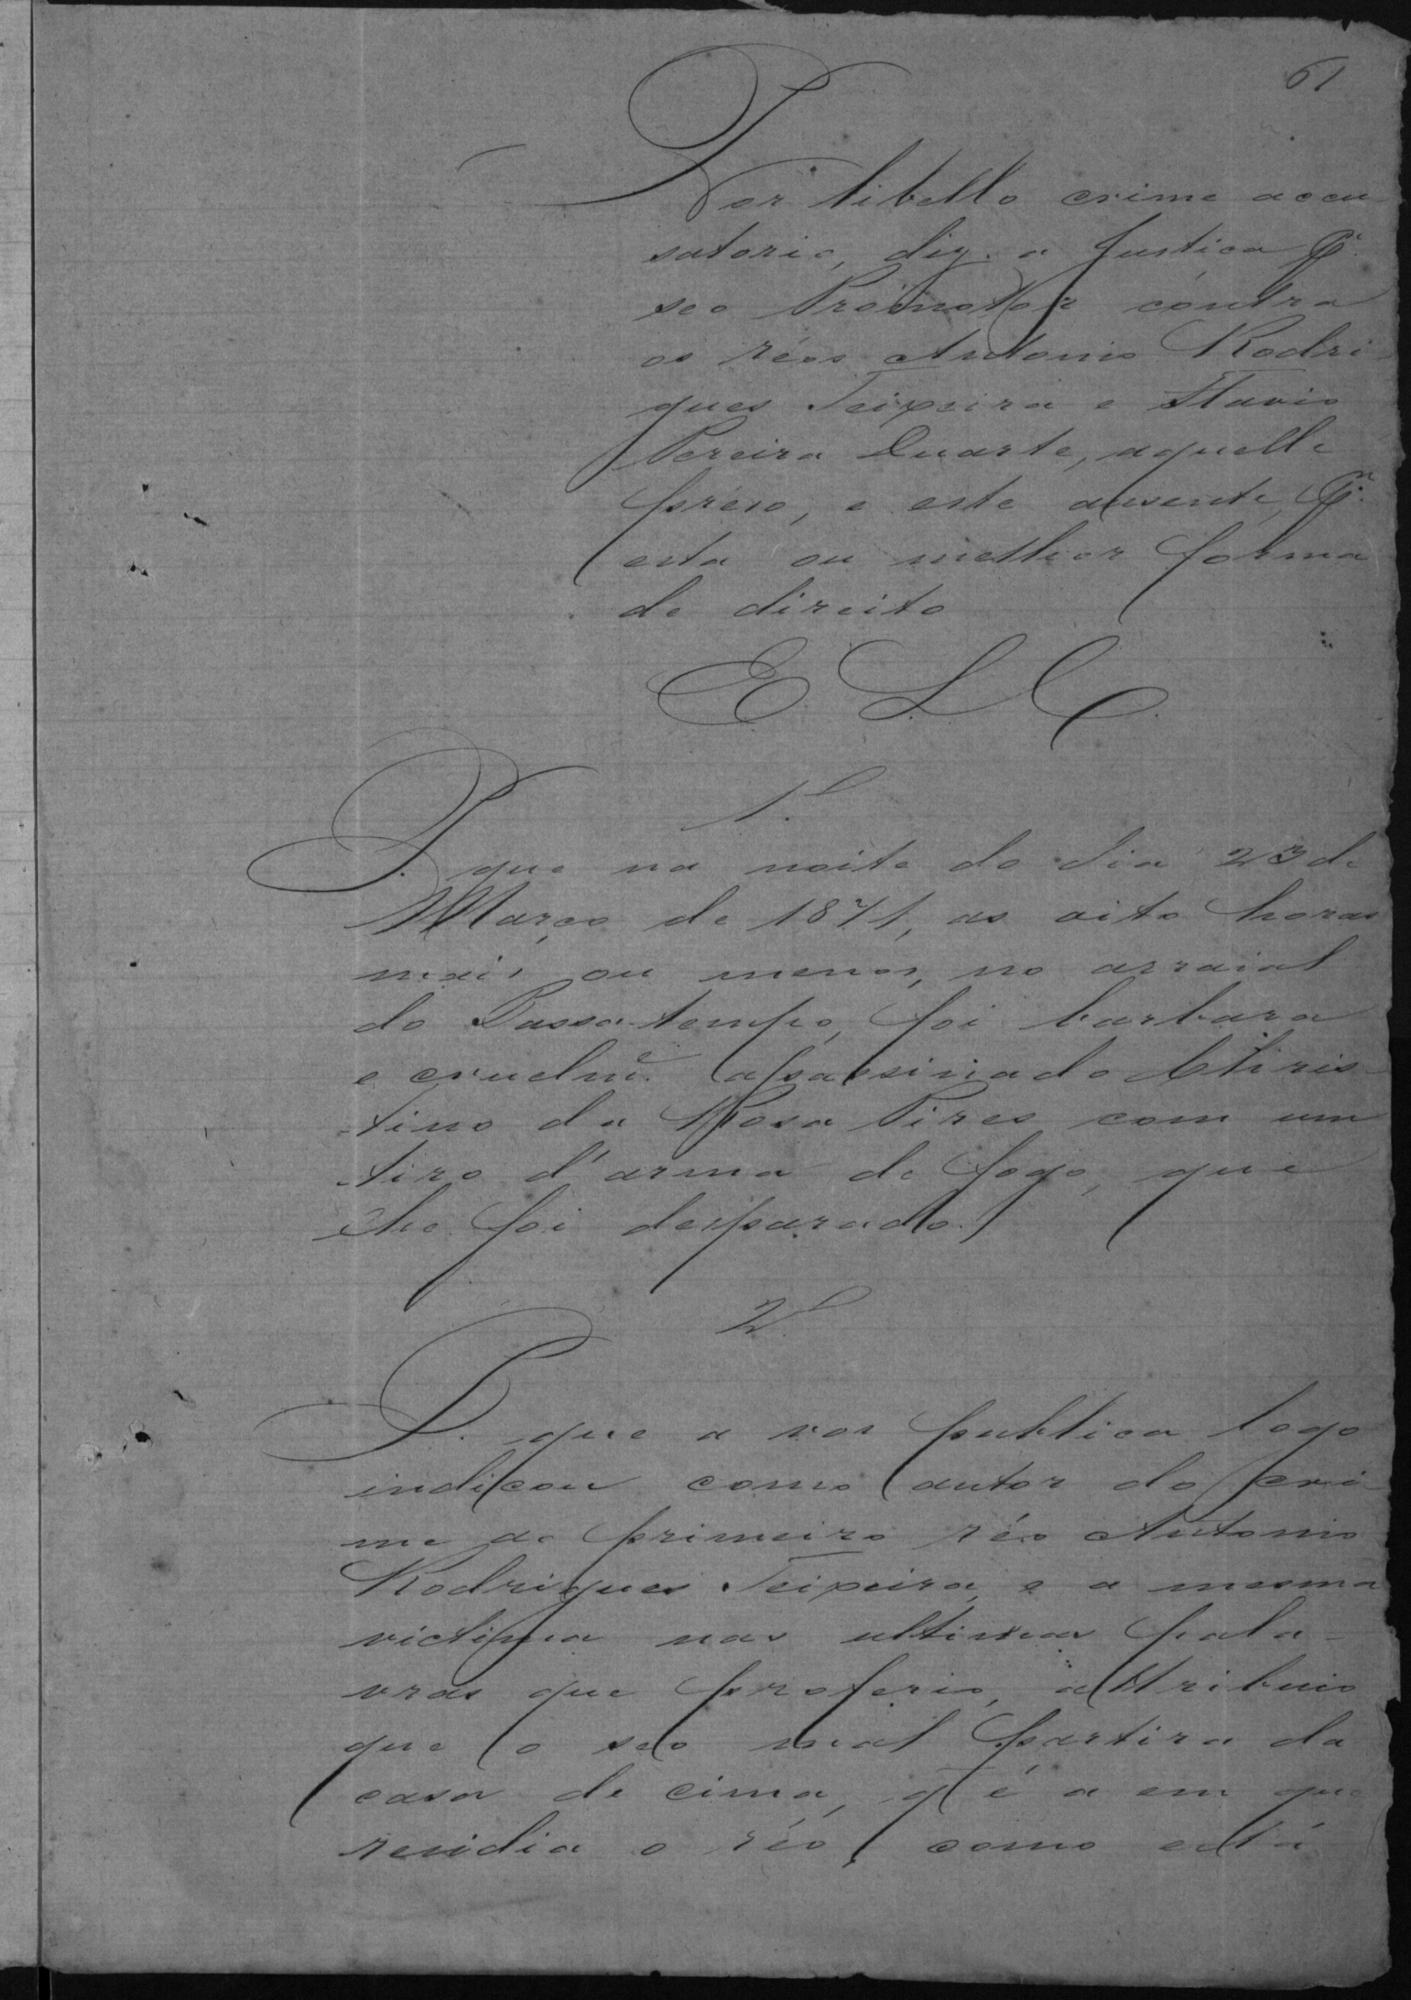 61
Por libello crime accu
satorio, diz. a Justica P.r
seo Promotor contra
os réos Antonio Rodri
gues Teixeira e Flavio
Pereira Duarte, aquelle
prezo, e este ausente, P.r
esta ou melhor forma
de direito
E. S. C.
1.º
P. que na noite do dia 23 de
Março de 1871, as oito horas
mais ou menos, no arraial
do Passa-tempo, foi barbara
e cruelm.e assassinado Chris
tino da Rosa Pires com um
tiro d'arma de fogo, que
lhe foi desparado.
2.º
P. que a vos publica logo
indicou como autor do cri
me ao primeiro réo Antonio
Rodrigues Teixeira, e a mesma
victima nas ultimas pala-
vras que proferio, attribuio
que o seo mal partira da
casa de cima, q é a em que
residia o réo, como está